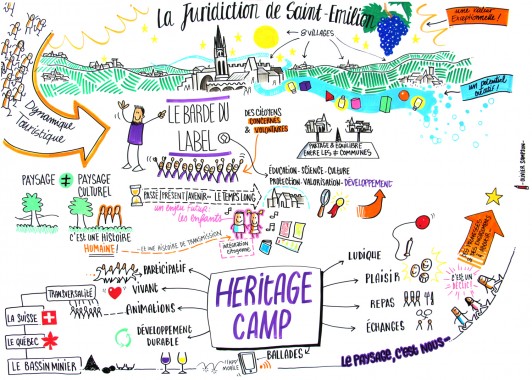 La Juridiction de Saint-Emilion
une valeur
Exceptionnelle !
8 VILLAGES
un potentiel
créatif !
Dynamique
Touristique
LE BARDE DU
LABEL
DES CITOYENS
CONCERNÉS
& VOLONTAIRES
PARTAGE & ÉQUILIBRE
ENTRE LES ≠ COMMUNES
ÉDUCATION - SCIENCE - CULTURE
PROTECTION - VALORISATION - DÉVELOPPEMENT
PAYSAGE ≠ PAYSAGE
CULTUREL
PASSÉ PRÉSENT AVENIR - LE TEMPS LONG
un enjeu futur:
les enfants
C'EST UNE HISTOIRE
HUMAINE !
ET UNE HISTOIRE DE TRANSMISSION
CITOYENNE
HERITAGE
CAMP
PARTICIPATIF
TRANSVERSALITÉ
VIVANT
ANIMATIONS
DÉVELOPPEMENT
DURABLE
LA SUISSE
LE QUÉBEC
LE BASSIN MINIER
BALLADES
LUDIQUE
PLAISIR
REPAS
ÉCHANGES
C'EST UN
DÉCLIC !
LE PAYSAGE, C'EST NOUS